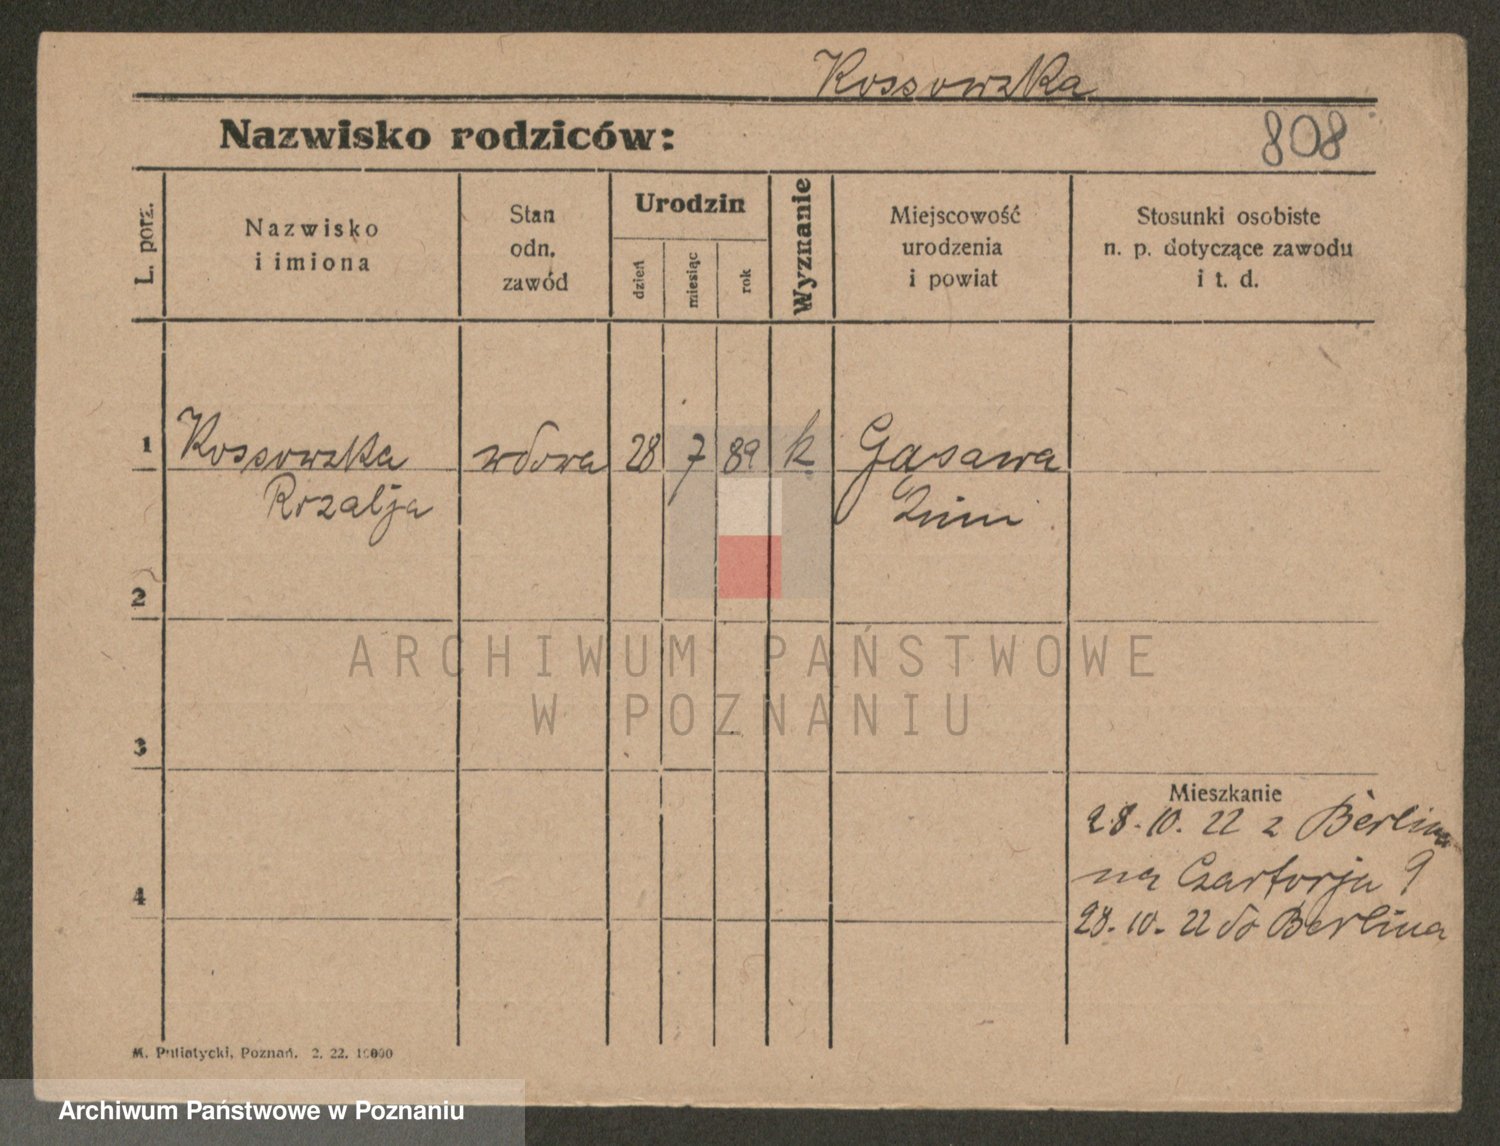 Kossowska
Nazwisko rodziców:
808
L. porz.
Nazwisko
i imiona
Stan
odn.
zawód
Urodzin
dzień
miesiąc
rok
Wyznanie
Miejscowość
urodzenia
i powiat
Stosunki osobiste
n. p. dotyczące zawodu
i t. d.
1 Kossowska wdowa 28 7 89 k Gąsawa
Rozalja Żnin
2
3
4
Mieszkanie
28.10.22 z Berlina
na Czartorja 9
28.10.22 do Berlina
ARCHIWUM PAŃSTWOWE
W POZNANIU
M. Putiatycki, Poznań. 2. 22. 10000
Archiwum Państwowe w Poznaniu